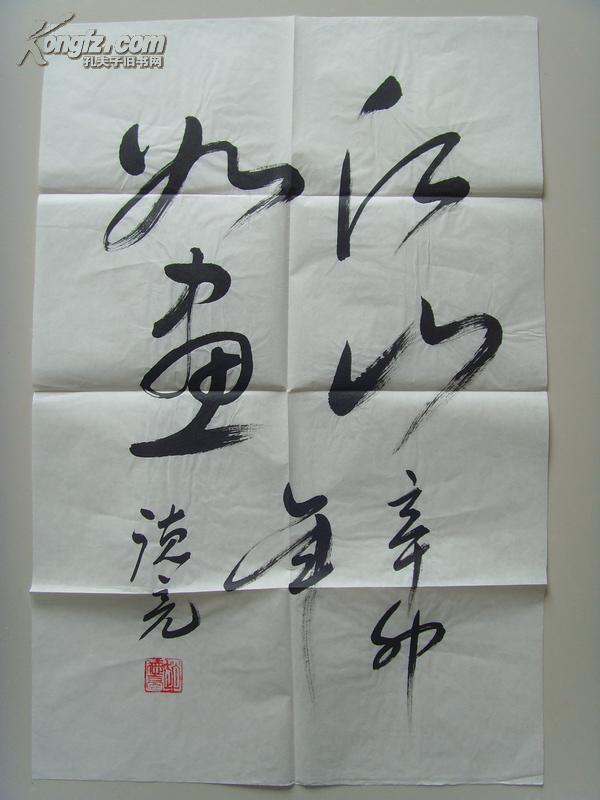 Kongfz.com
孔夫子旧书网
江山
如畫
辛卯
年
德亮